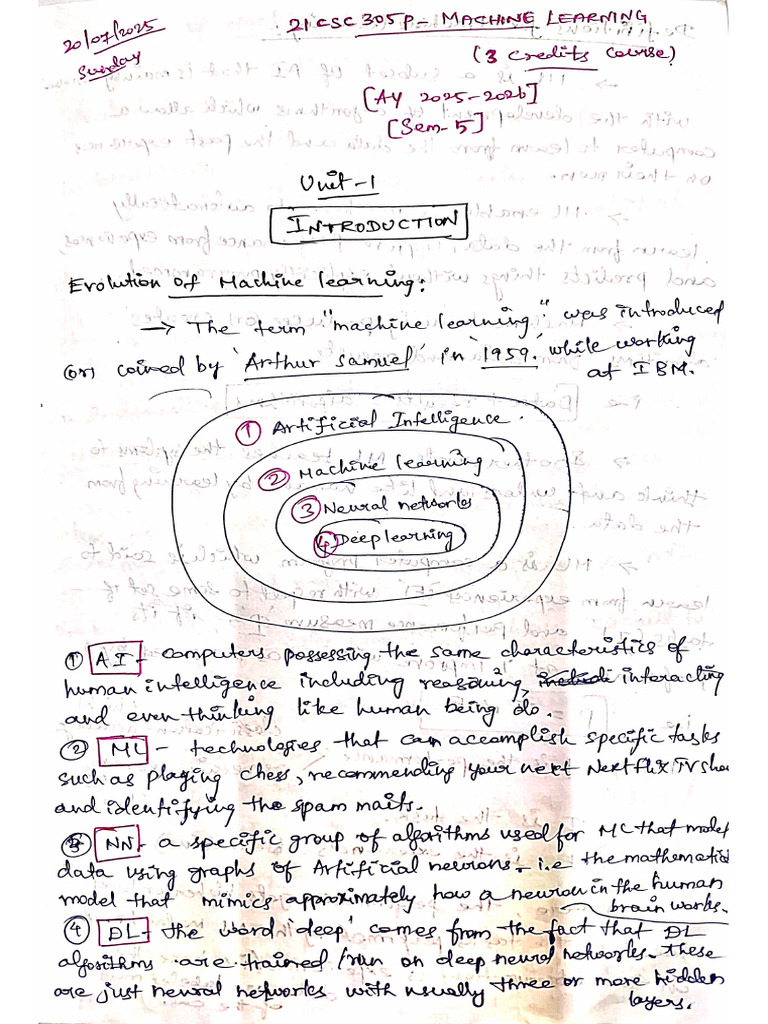 20/07/2025
Sunday
21CSC305P - MACHINE LEARNING
(3 credits course)
[AY 2025-2026]
[Sem-5]
Unit-1
INTRODUCTION
Evolution of Machine learning:
→ The term "machine learning" was introduced
(or) coined by 'Arthur Samuel' in '1959.' while working
at IBM.
① Artificial Intelligence.
② Machine learning
③ Neural networks
④ Deep learning
① AI - computers possessing the same characteristics of
human intelligence including reasoning, interacting
and even thinking like human being do.
② ML - technologies that can accomplish specific tasks
such as playing chess, recommending your next Nextflix TV show
and identifying the spam mails.
③ NN - a specific group of algorithms used for ML that model
data using graphs of Artificial neurons. i.e the mathematical
model that mimics approximately how a neuron in the human
brain works.
④ DL - the word 'deep' comes from the fact that DL
algorithms are trained /run on deep neural networks. these
are just neural networks with usually three or more hidden
layers.